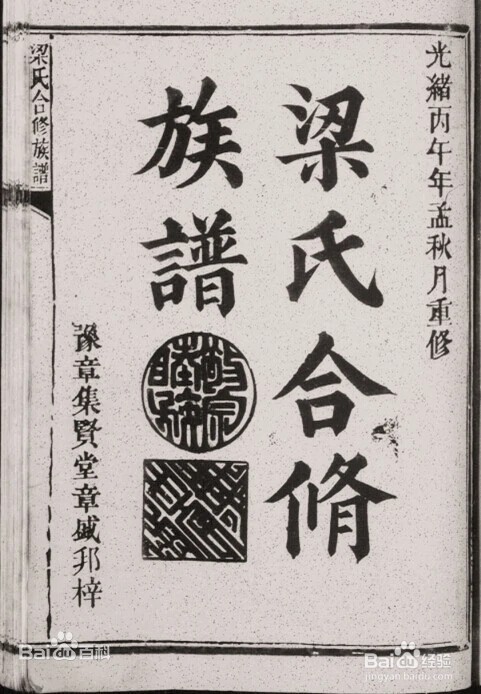 光緒丙午年孟秋月重修
梁氏合脩
族譜
敬宗睦族
豫章集賢堂章盛邦梓
梁氏合修族譜
Bai百科
Bai经验
jingyan.baidu.com